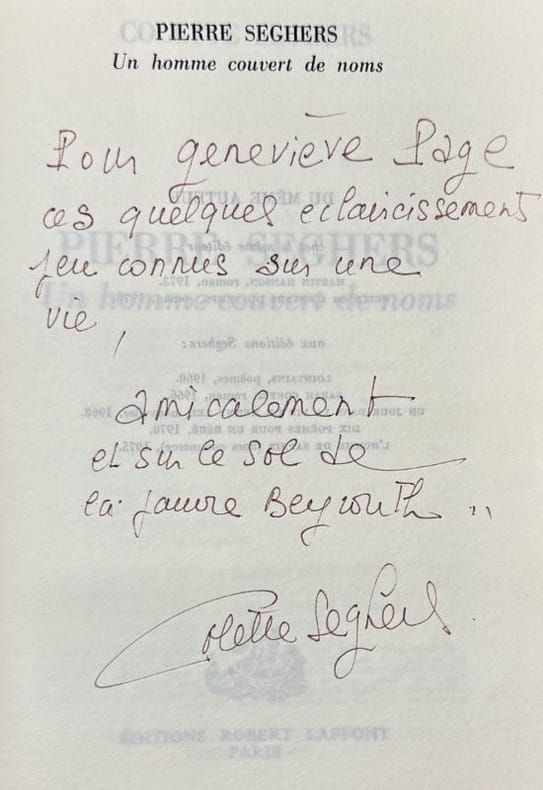 PIERRE SEGHERS
Un homme couvert de noms
Pour geneviève Page
ces quelques eclaircissement
peu connus sur une
vie,
amicalement
et sur le sol de
la pauvre Beyrouth ..
Colette Seghers.
ÉDITIONS ROBERT LAFFONT
PARIS